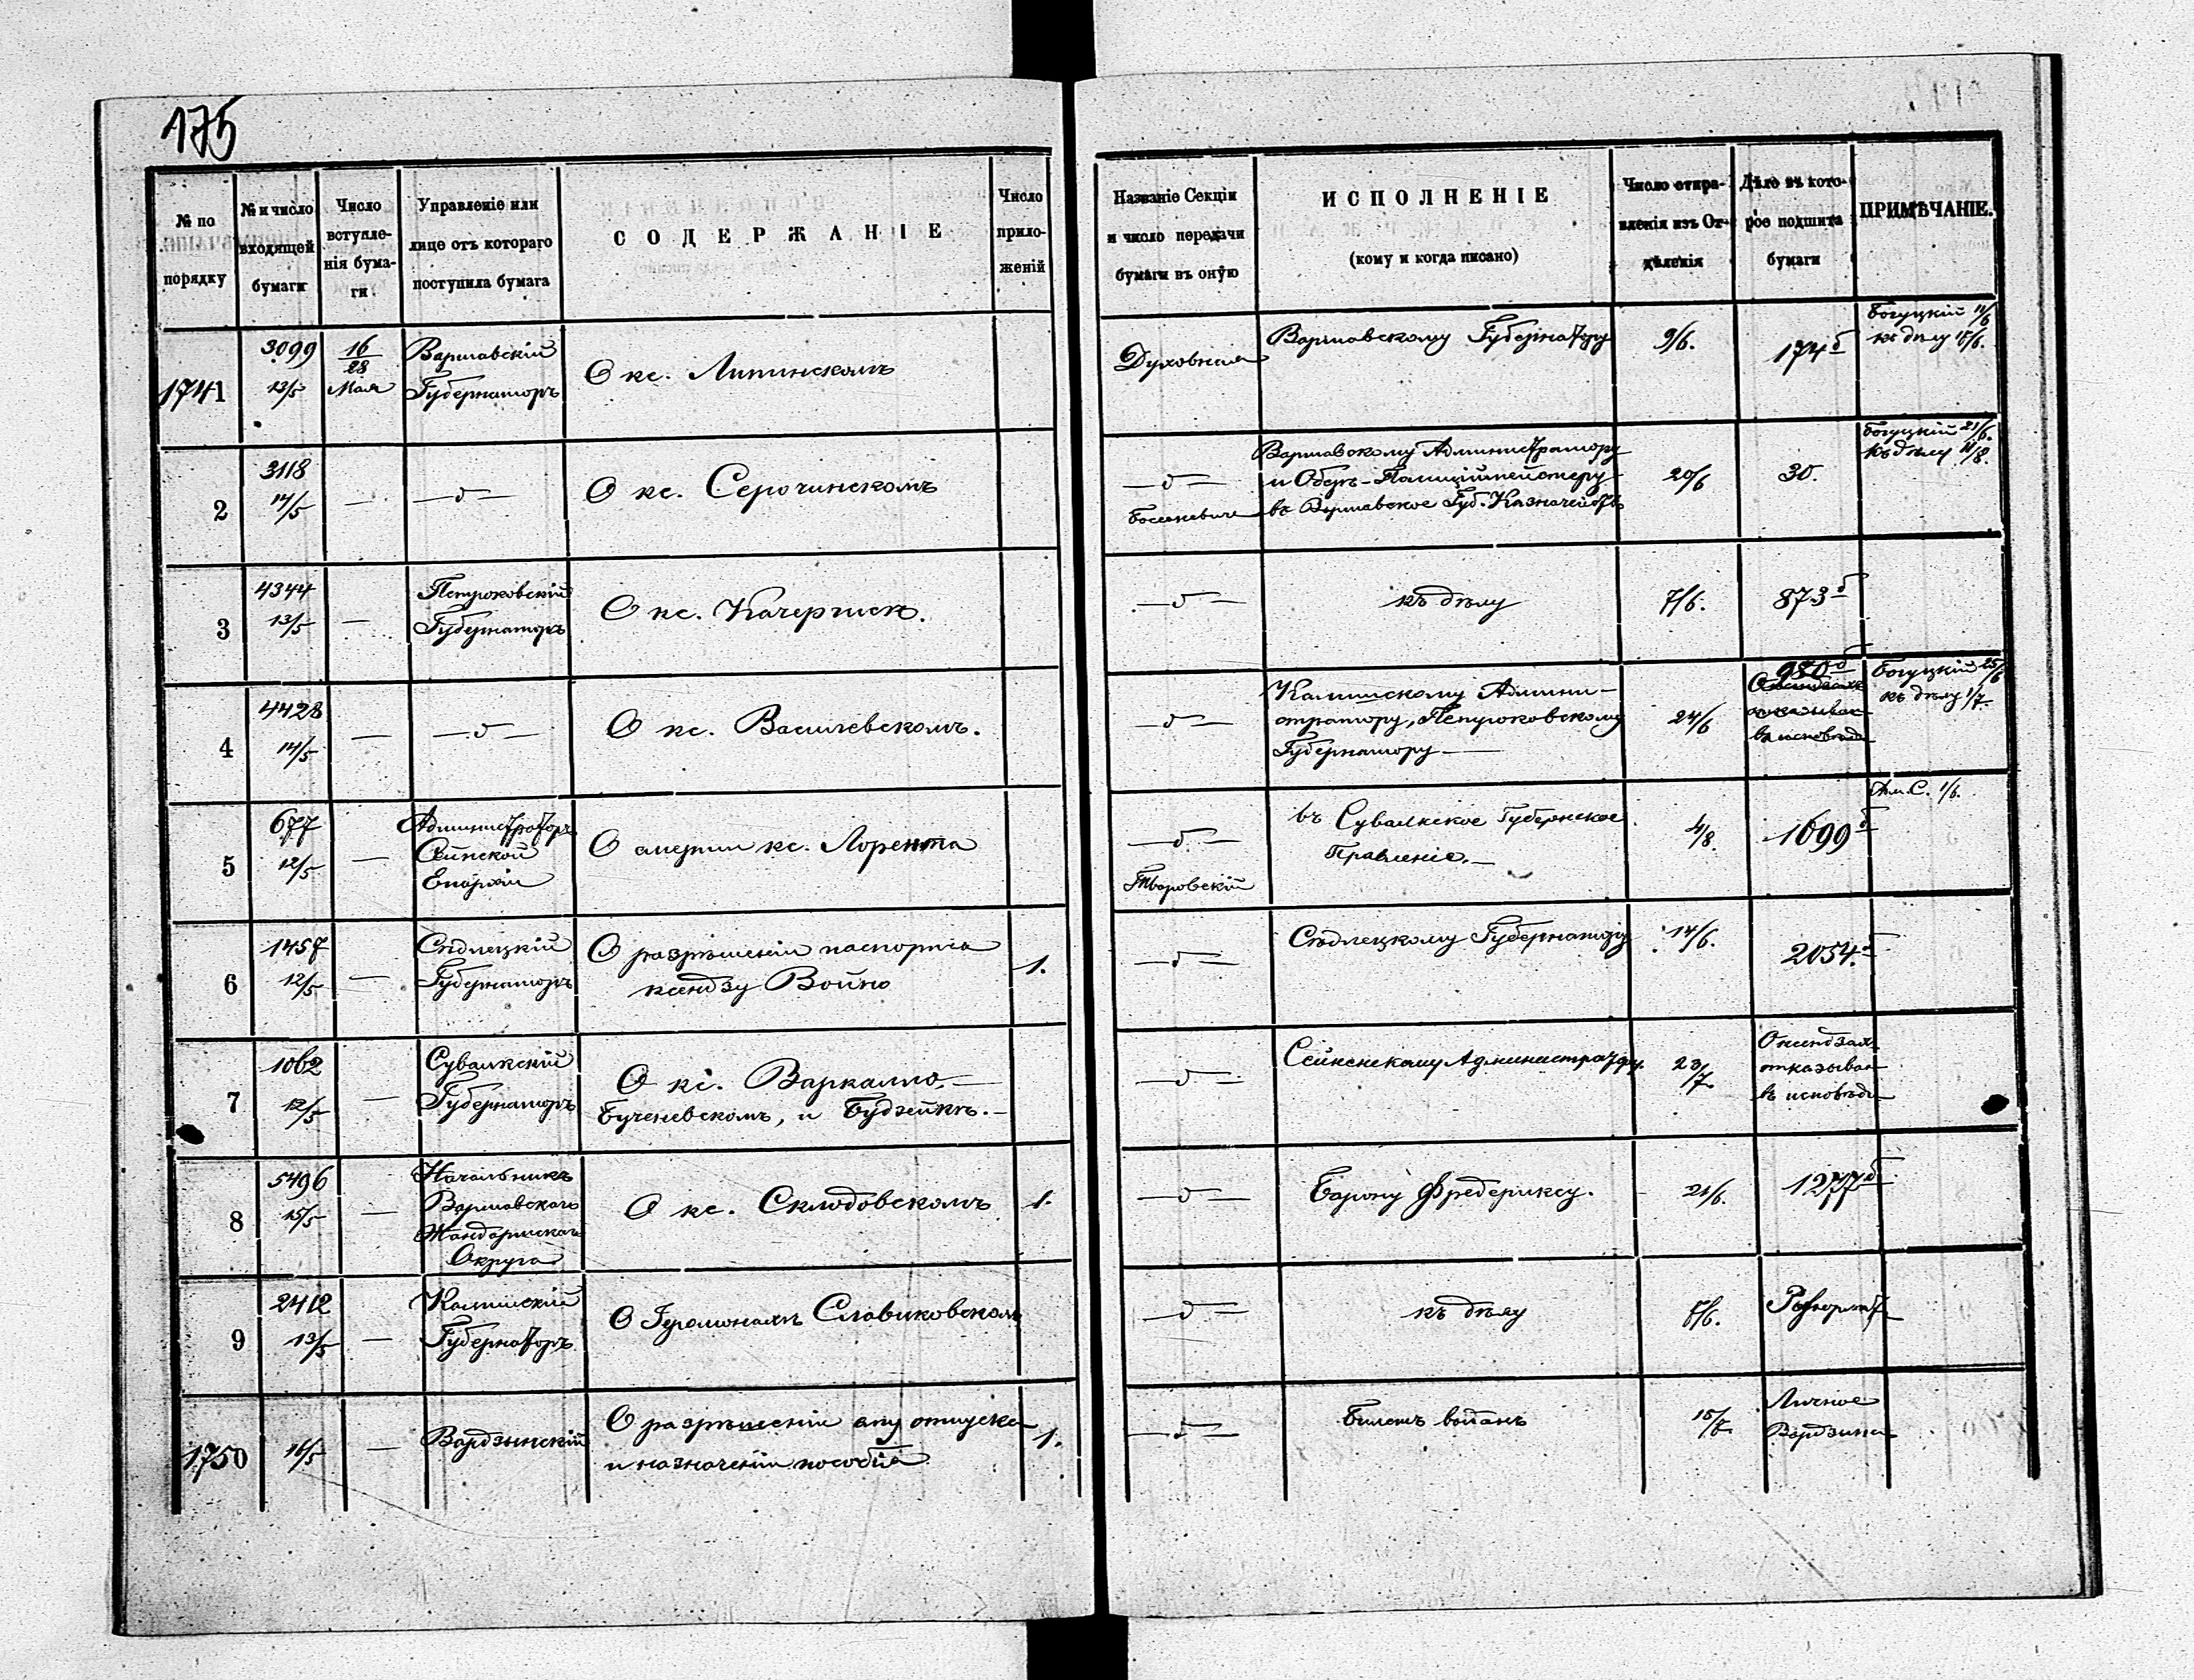 175
№ по порядку
№ и число входящей бумаги
Число вступле-нія бума-ги
Управленіе или лице отъ котораго поступила бумага
СОДЕРЖАНІЕ
Число прило-женій
Названіе Секціи и число передачи бумаги въ оную
ИСПОЛНЕНІЕ
(кому и когда писано)
Число отпра-вленія изъ От-дѣленія
Дѣло въ кото-рое подшита бумаги
ПРИМѢЧАНІЕ.
1741
3099
13/5
16/28 Мая
Варшавскій
Губернаторъ
О кс. Липинскомъ
Духовная
Варшавскому Губернатору
9/6.
174 б
Богуцкій 11/6
къ дѣлу 15/6.
2
3118
14/5
—
—„—
О кс. Серочинскомъ
—„—
Варшавскому Администратору
и Оберъ-Полиціймейстеру
въ Варшавское Губ. Казначейств
20/6
30.
Богуцкій 21/6.
къ дѣлу 11/8.
3
4344
13/5
—
Петроковскій
Губернаторъ
О кс. Качергисѣ.
—„—
къ дѣлу
7/6.
873 б
4
4428
14/5
—
—„—
О кс. Василевскомъ.
—„—
Калишскому Админи-
стратору, Петроковскому
Губернатору —
24/6
980 б
Богуцкій 25/6
къ дѣлу 1/7.
5
677
12/5
—
Администраторъ
Сейнской
Епархіи
О смерти кс. Лорента
—„—
Тваровскій
въ Сувалкское Губернское
Правленіе. —
4/8.
1699 б
1/6.
6
1457
12/5
—
Сѣдлецкій
Губернаторъ
О разрѣшеніи паспорта
ксендзу Войно
1.
—„—
Сѣдлецкому Губернатору
14/6.
2054.
7
1062
12/5
—
Сувалкскій
Губернаторъ
О кс. Варкалло, —
Бученевскомъ, и Будзейкѣ. —
—„—
Сейненскому Администратору.
23/7.
О ксендзахъ
отказыван
въ исповѣди
8
5496
15/5
—
Начальникъ
Варшавскаго
Жандармскаго
Округа
О кс. Склодовскомъ
1.
—„—
Барону Фредериксу.
21/6.
1277 б
9
2412
13/5
—
Калишскій
Губернаторъ
О Іеромонахѣ Славиковскомъ
—„—
къ дѣлу
7/6.
1750
16/5
—
Вардзынскій
О разрѣшеніи ему отпуска
и назначеніи пособія
1.
—„—
Билетъ выданъ
Личное
Вардзынс